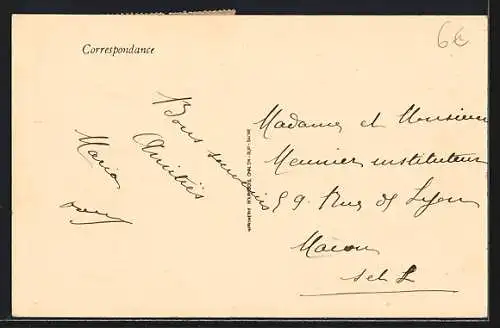 Correspondance
6€
Bons souvenirs
Amitiés
Maria
Madame et Monsieur
Meunier instituteur
59 Rue de Lyon
Macon
S et L